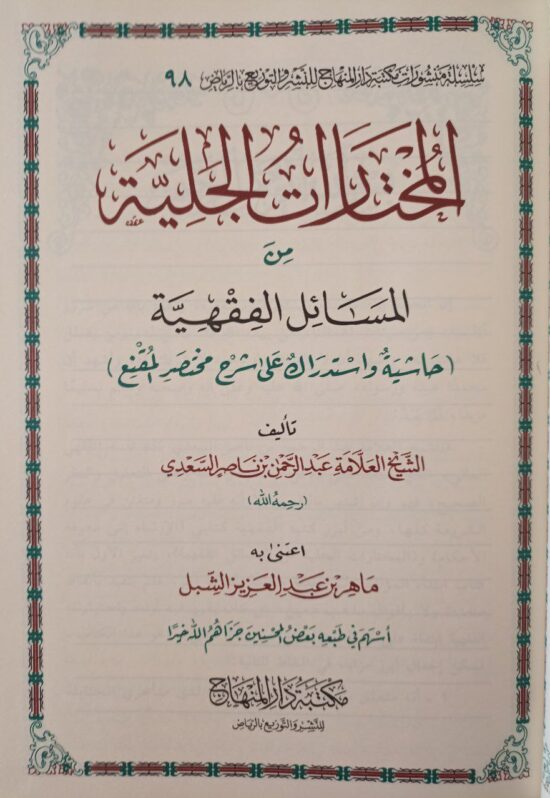 سلسلة منشورات مكتبة دار المنهاج للنشر والتوزيع بالرياض ٩٨
المُختَارَاتُ الجَلِيَّة
مِنَ
المَسَائِل الفِقْهِيَّة
(حَاشِيَةٌ وَاسْتدرَاكٌ عَلىٰ شَرْح مختصَرِ المُقْنِعِ)
تأليف
الشَّيْخ العَلَّامَة عَبْد الرَّحمٰن بْن نَاصِر السَّعْدِي
(رحمهُ الله)
اعتنىٰ به
مَاهِر بْن عَبْد العَزيز الشّبل
أسْهَمَ في طَبْعِهِ بَعْضُ المُحْسِنِين جَزَاهُمُ اللهُ خَيرًا
مكتبة دار المنهاج
للنَّشْر وَالتَّوزيع بالرِّيَاض